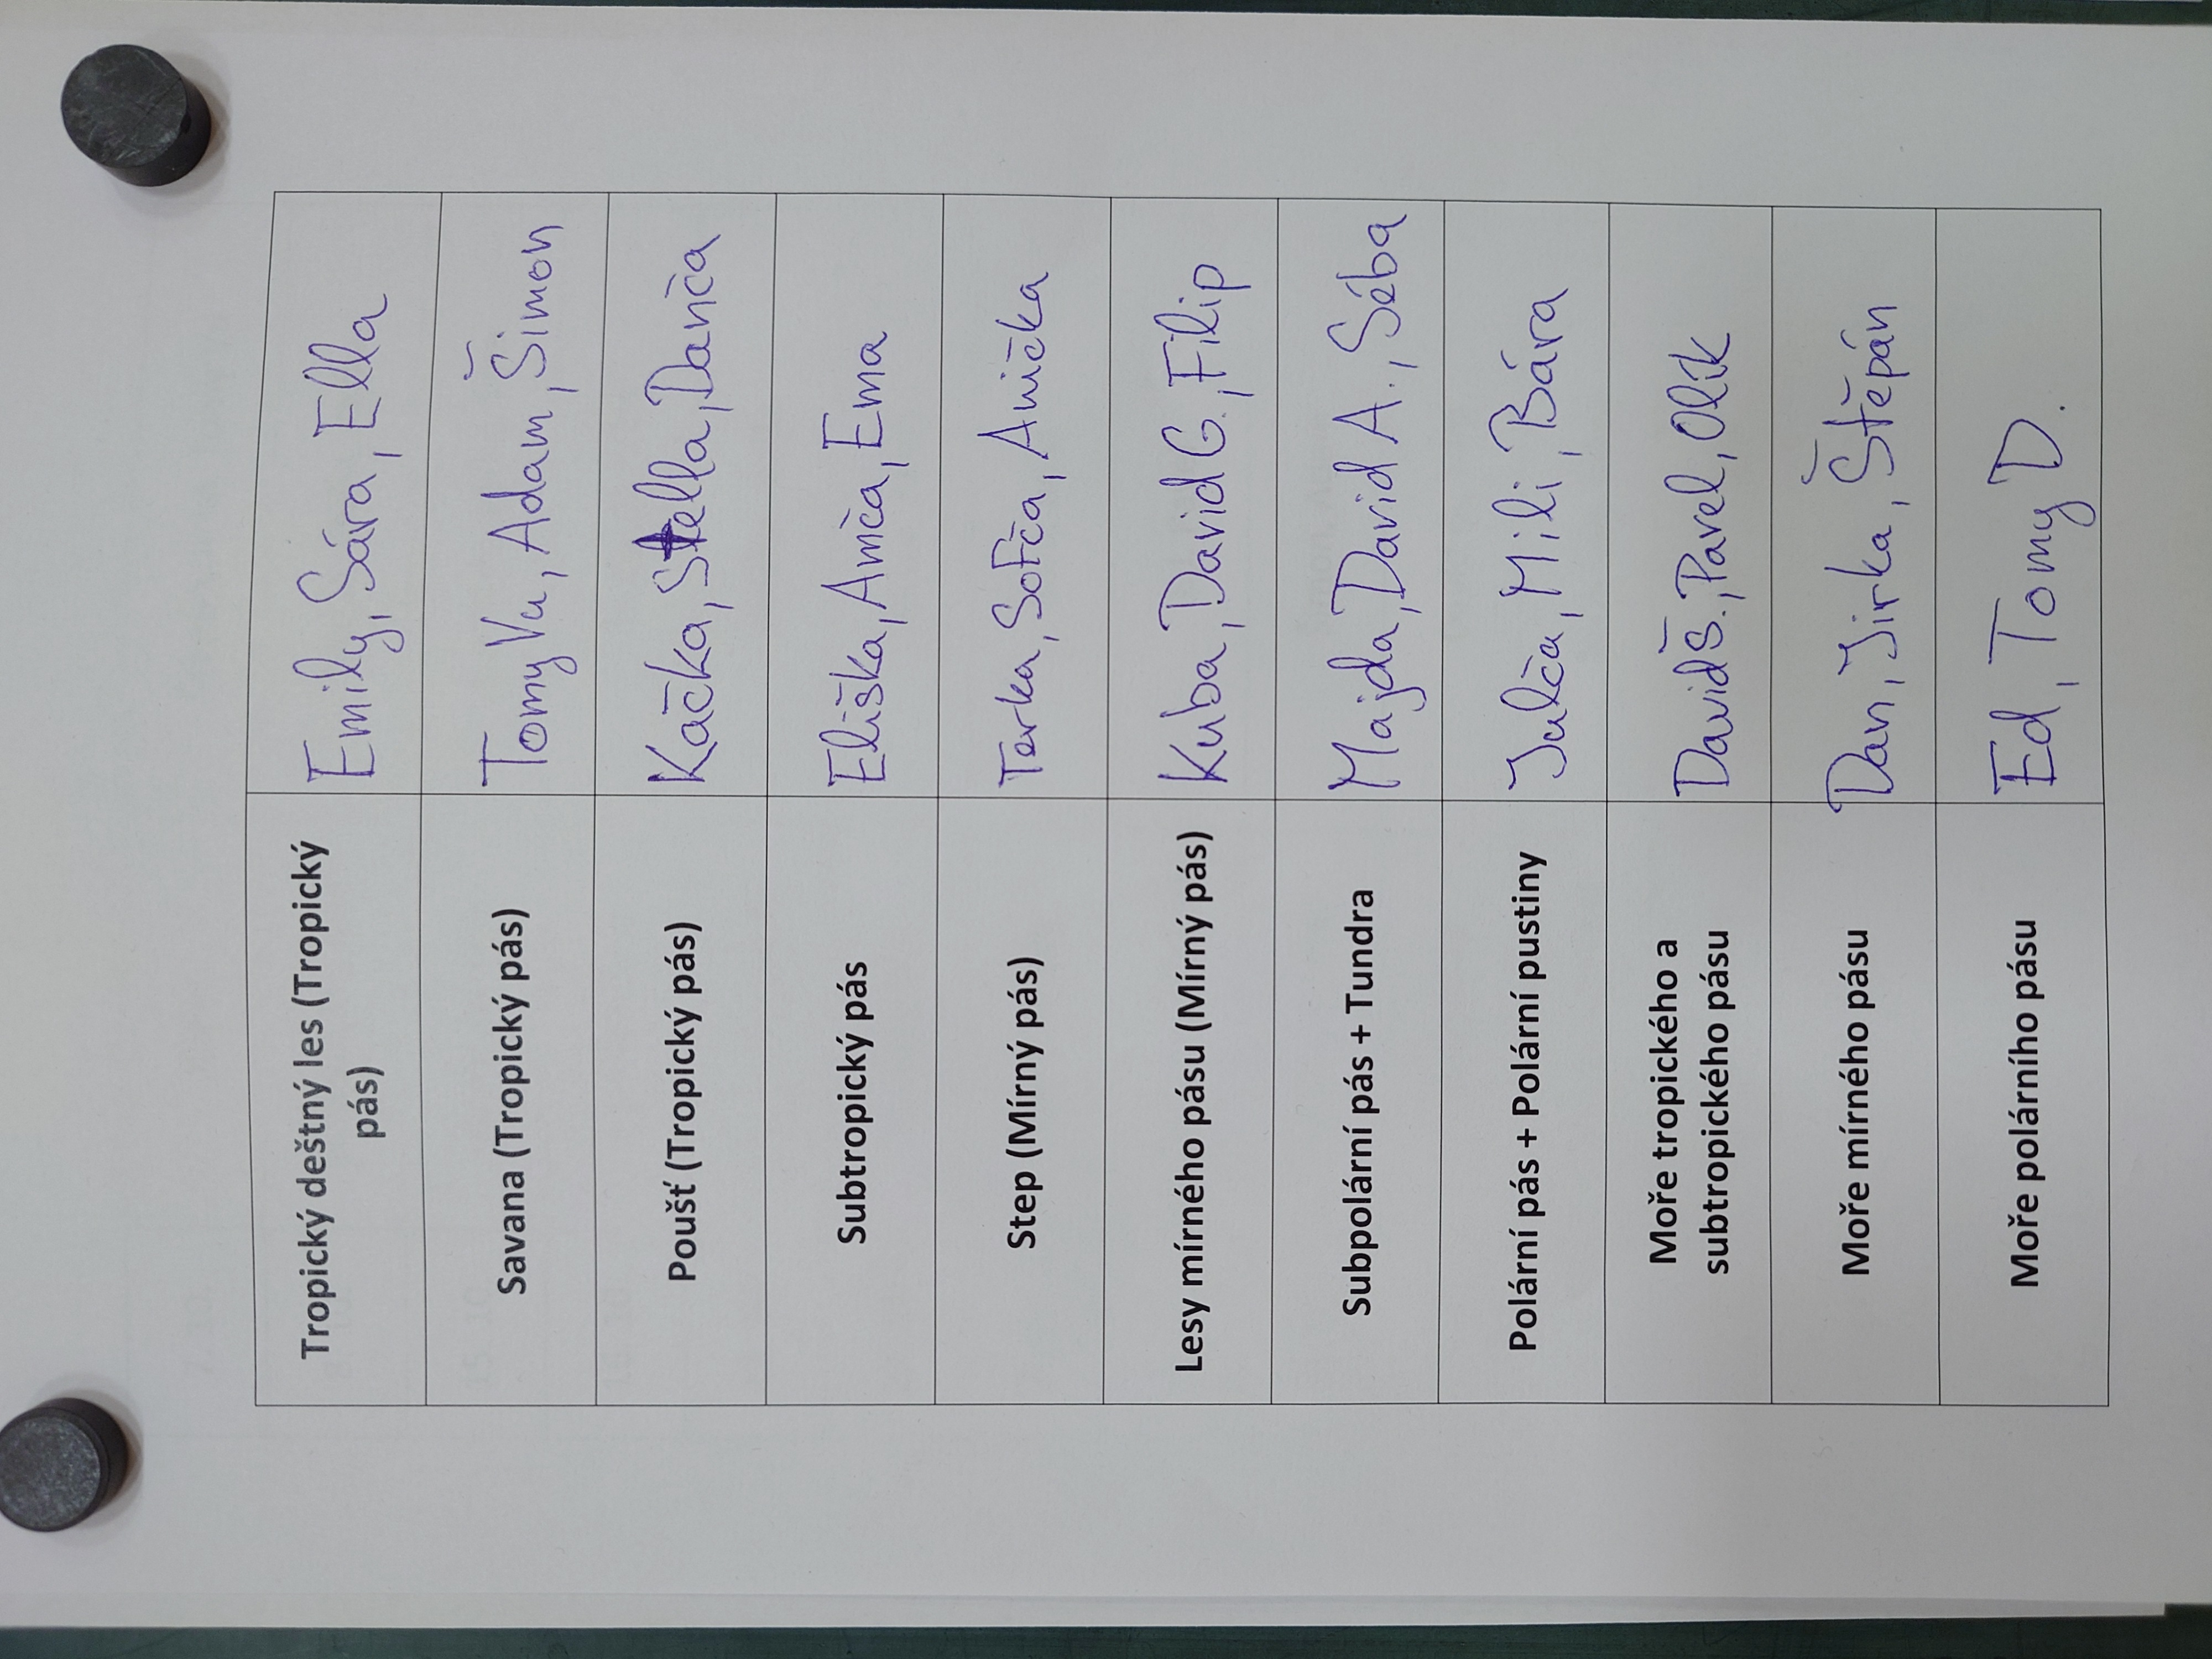 Tropický deštný les (Tropický
pás)
Emily, Sára, Ella
Savana (Tropický pás)
Tomy Vu, Adam, Šimon
Poušť (Tropický pás)
Káčka, Stella, Danča
Subtropický pás
Eliška, Anča, Ema
Step (Mírný pás)
Terka, Sofča, Anička
Lesy mírného pásu (Mírný pás)
Kuba, David G., Filip
Subpolární pás + Tundra
Majda, David A., Séba
Polární pás + Polární pustiny
Julča, Mili, Bára
Moře tropického a
subtropického pásu
David Š., Pavel, Olík
Moře mírného pásu
Dan, Jirka, Štěpán
Moře polárního pásu
Ed, Tomy D.